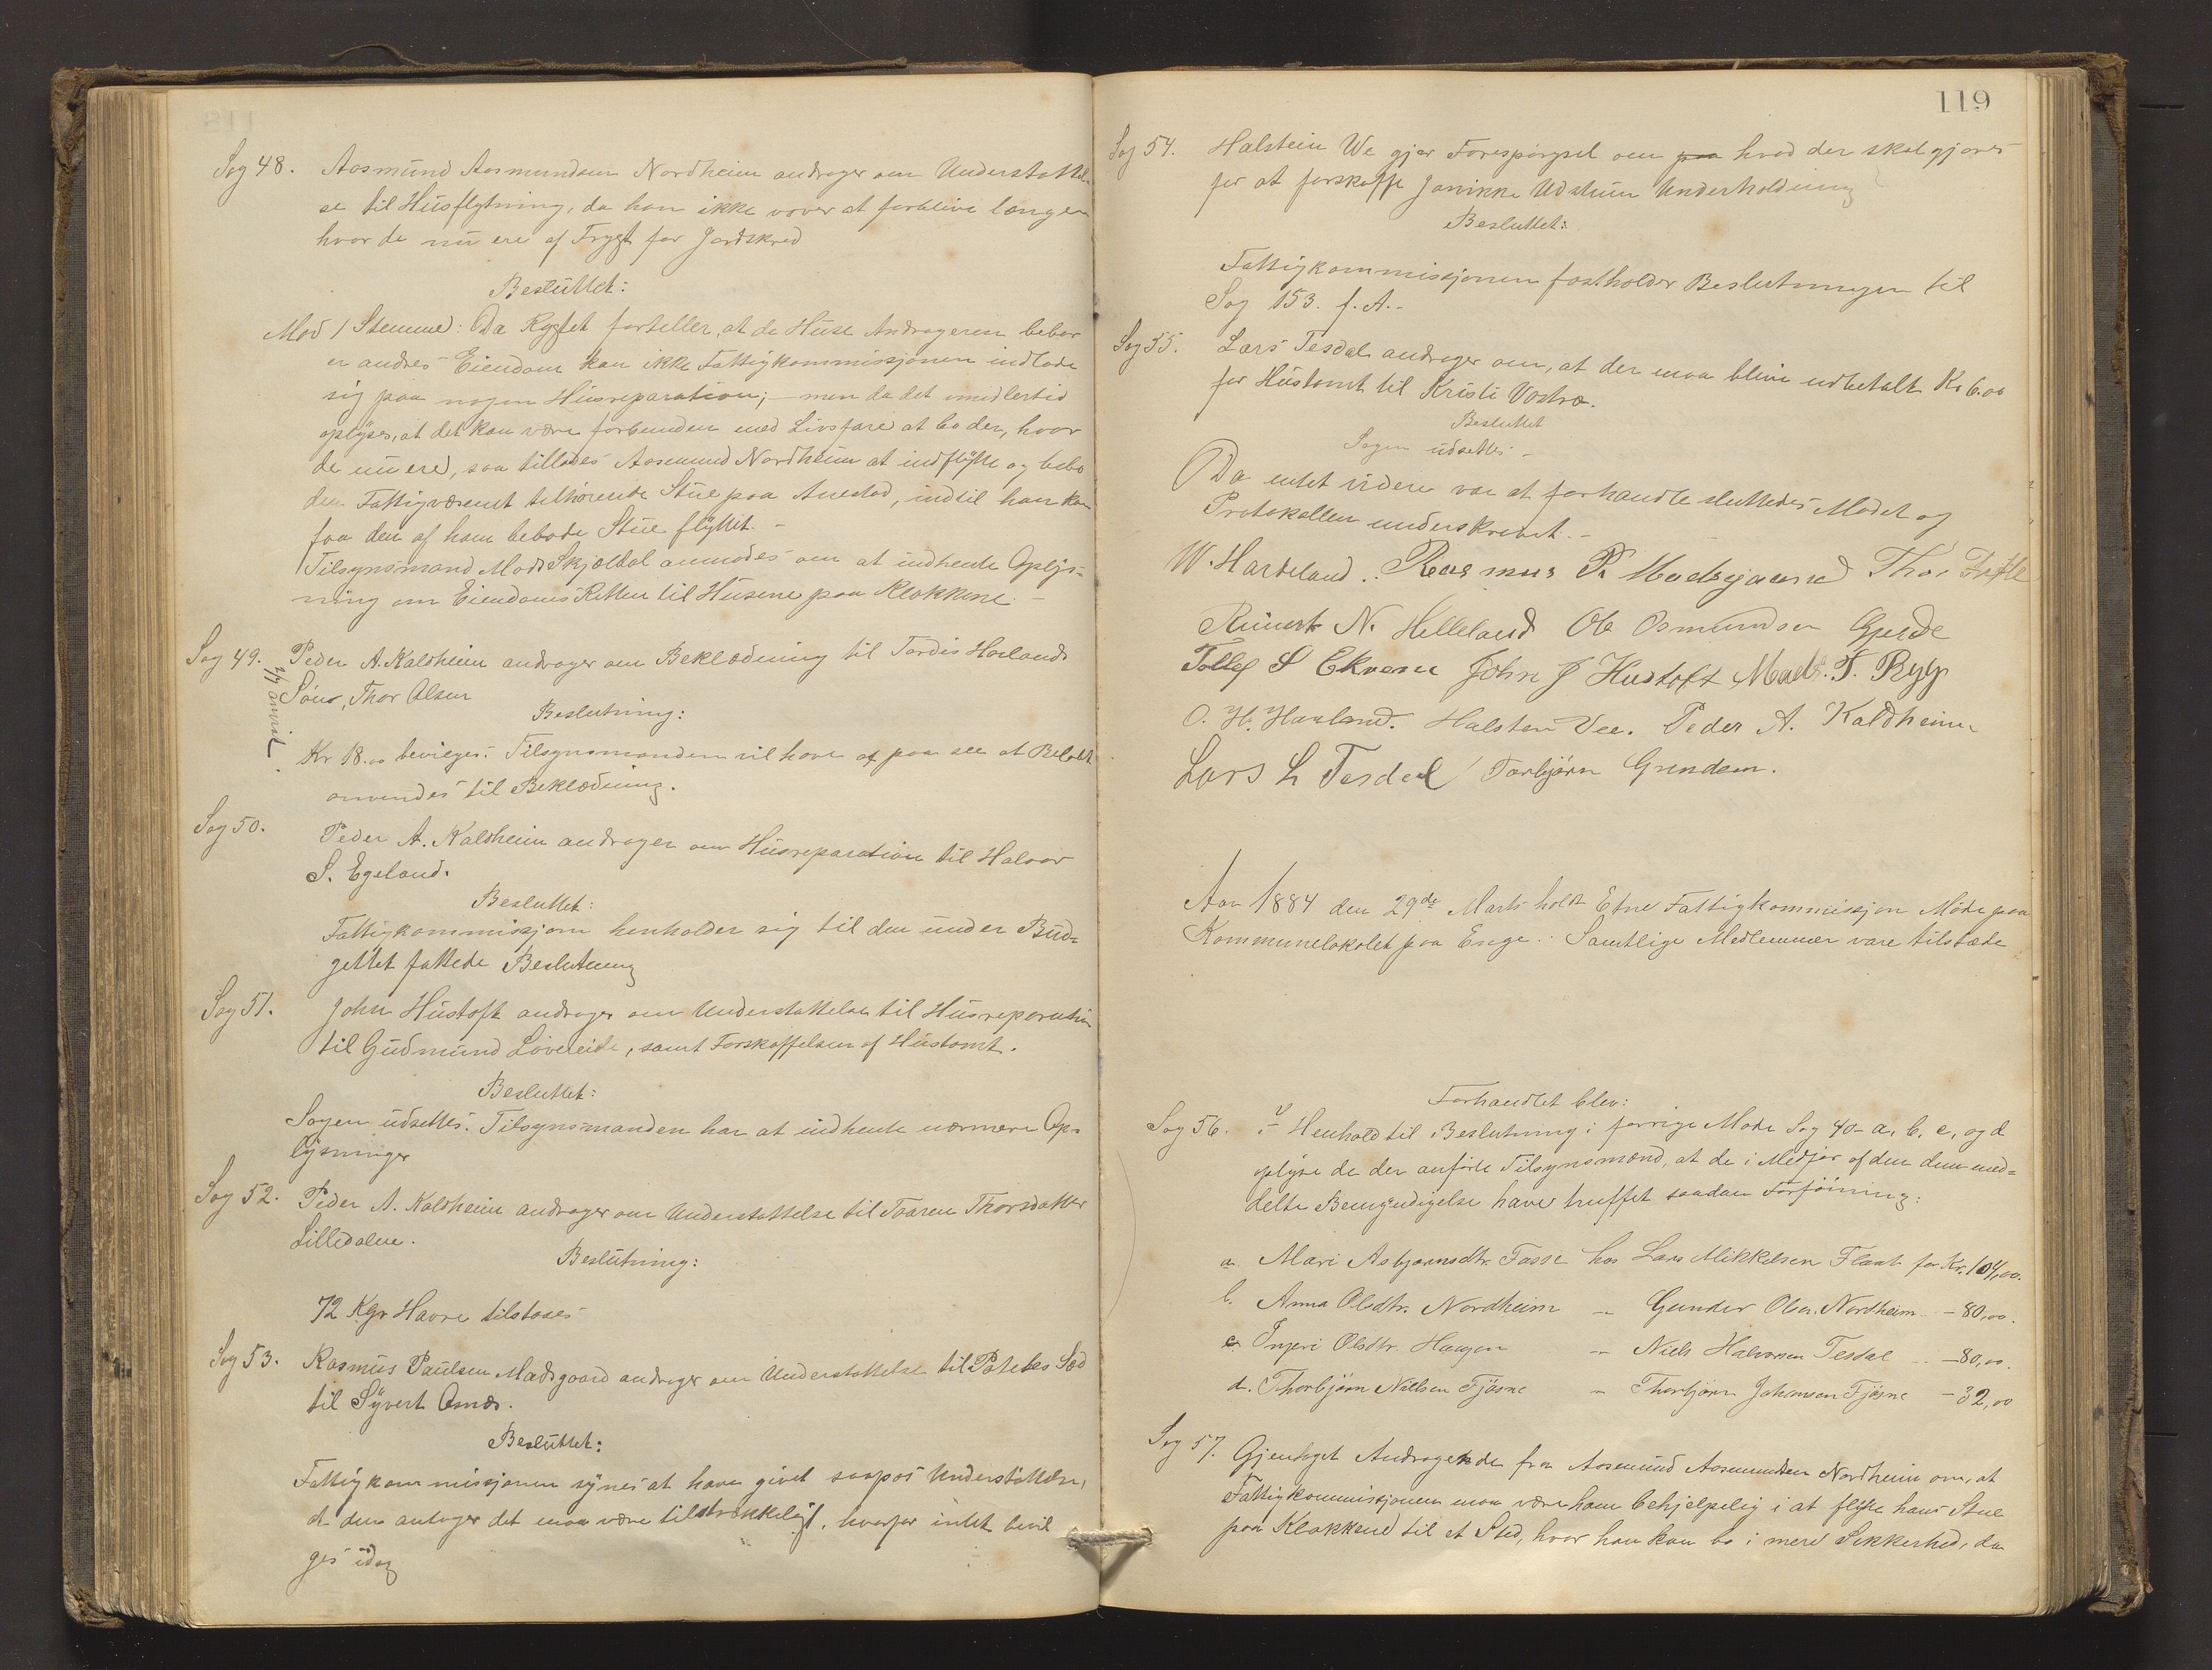 Sag 48. Aosmund Aosmundsen Nordheim andrager om Understøttel-
se til Husflytning, da han ikke vover at forblive længer
hvor de nu ere af Frygt for Jordskred
Besluttet:
Mod 1 Stemme: Da Rygtet forteller, at de Huse Andrageren bebor
er andres Eiendom kan ikke Fattigkommissjonen indlade
sig paa nogen Husreparation; – men da det imidlertid
oplyses, at det kan være forbunden med Livsfare at bo der, hvor
de nu ere, saa tillades Aosmund Nordheim at indflytte og bebo
den Fattigvæsenet tilhørende Stue paa Anestad, indtil han kan
faa den af ham bebode Stue flyttet. –
Tilsynsmand Mads Skjoldal anmodes om at indhente Oplys-
ning om Eiendoms Retten til Husene paa Klokkene. –
Sag 49. Peder A. Kaldheim andrager om Beklædning til Tordis Haalands
Søns, Thor Olsen
Beslutning:
Kr 18.00 bevilges. Tilsynsmanden vil have at paa see at Beløbet
anvendes til Beklædning.
Sag 50. Peder A. Kaldheim andrager om Husreparation til Halvor
S. Egeland.
Besluttet:
Fattigkommissjonen henholder sig til den under Bud-
gettet fattede Beslutning
Sag 51. John Hustoft andrager om Understøttelse til Husreparation
til Gudmund Løvereide, samt Forskaffelsen af Hustomt.
Besluttet:
Sagen udsettes. Tilsynsmanden har at indhente nærmere Op-
lysninger
Sag 52. Peder A. Kaldheim andrager om Understøttelse til Toaren Thorsdatter
Lilledalen.
Beslutning:
72 Kgr Havre tilstaaes
Sag 53. Rasmus Paulsen Madsgaard andrager om Understøttelse til Potetes Sæd
til Syvert Omdr.
Besluttet:
Fattigkommissjonen synes at have givet saapas Understøttelse,
at den antager det maa være tilstrækkeligt, hvorfor intet bevil
ges idag
119
Sag 54. Halstein We gjør Forespørgsel om paa hvad der skal gjøres
for at forskaffe Jannikke Udstuen Underholdning
Besluttet:
Fattigkommissjonen fastholder Beslutningen til
Sag 153. f. A. –
Sag 55. Lars Tesdal andrager om, at der maa blive udbetalt Kr 6.00
for Hustomt til Kristi Vastra.
Besluttet
Sagen udsettes –
Da intet videre var at forhandle sluttedes Mødet og
Protokollen underskrevet. –
W. Hardeland. Rasmus P. Madsgaard Thor Fatle
Reinert N. Helleland Ole Osmundsen Gjerde
Tollef S Ekrene John J Hustoft Mads. T. Ryg
O. H. Haaland. Halsten Vee. Peder A. Kaldheim
Lars L Tesdal Torbjørn Grindem.
Aar 1884 den 29de Marts holdt Etne Fattigkommissjon Møde paa
Kommunelokalet paa Enge. Samtlige Medlemmer vare tilstæde
Forhandlet blev:
Sag 56. I Henhold til Beslutning i forrige Møde Sag 40 – a, b, c, og d
oplyse de der anførte Tilsynsmænd, at de i Medfør af den dem med-
delte Bemyndigelse have truffet saadan Forføining:
a. Mari Asbjørnsdtr. Fosse hos Lars Mikkelsen Flaat for Kr. 104,00.
b. Anna Olsdtr. Nordheim – Gunder Olsen Nordheim – 80,00.
c. Ingeri Olsdtr. Haugen – Niels Halvorsen Tesdal – 80,00.
d. Thorbjørn Nielsen Tjøsne – Thorbjørn Johansen Tjøsne – 32,00
Sag 57. Gjentaget Andragende fra Aosmund Aosmundsen Nordheim om, at
Fattigkommissjonen maa være ham behjelpelig i at flytte hans Stue
paa Klokkene til et Sted, hvor han kan bo i mere Sikkerhed, da